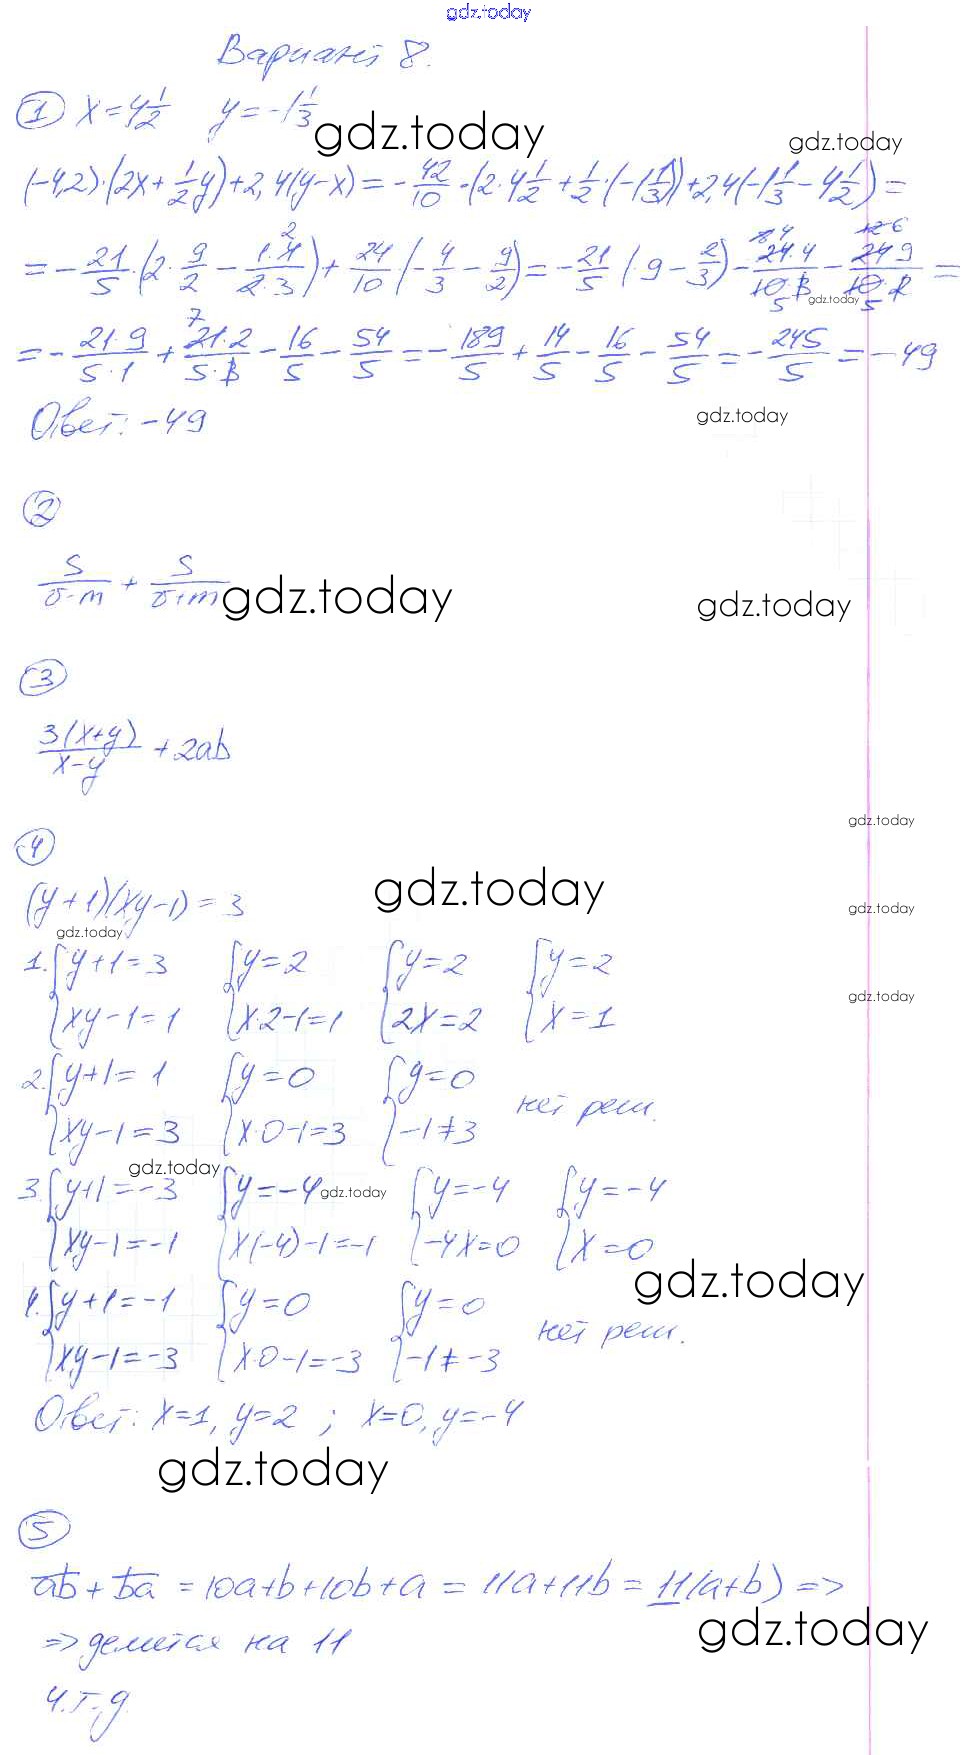 gdz.today
Вариант 8.
① x=4 1/2 y=-1 1/3
gdz.today
gdz.today
(-4,2)·(2x+1/2y)+2,4(y-x)=-42/10·(2·4 1/2+1/2·(-1 1/3))+2,4(-1 1/3-4 1/2)=
=-21/5·(2·9/2-1·4/2·3)+24/10(-4/3-9/2)=-21/5(9-2/3)-24·4/10·3-24·9/10·2=
gdz.today
=-21·9/5·1+21·2/5·3-16/5-54/5=-189/5+14/5-16/5-54/5=-245/5=-49
Ответ: -49
gdz.today
②
S/(v-m)+S/(v+m)
gdz.today
gdz.today
③
3(x+y)/(x-y)+2ab
④
gdz.today
(y+1)(xy-1)=3
gdz.today
gdz.today
gdz.today
1. {y+1=3 {y=2 {y=2 {y=2
xy-1=1 x·2-1=1 2x=2 x=1
gdz.today
2. {y+1=1 {y=0 {y=0 нет реш.
xy-1=3 x·0-1=3 -1≠3
gdz.today
3. {y+1=-3 {y=-4 {y=-4 {y=-4
gdz.today
xy-1=-1 x(-4)-1=-1 -4x=0 x=0
gdz.today
4. {y+1=-1 {y=0 {y=0 нет реш.
xy-1=-3 x·0-1=-3 -1≠-3
Ответ: x=1, y=2 ; x=0, y=-4
gdz.today
⑤
ab+ba=10a+b+10b+a=11a+11b=11(a+b)=>
gdz.today
=> делится на 11
ч.т.д.